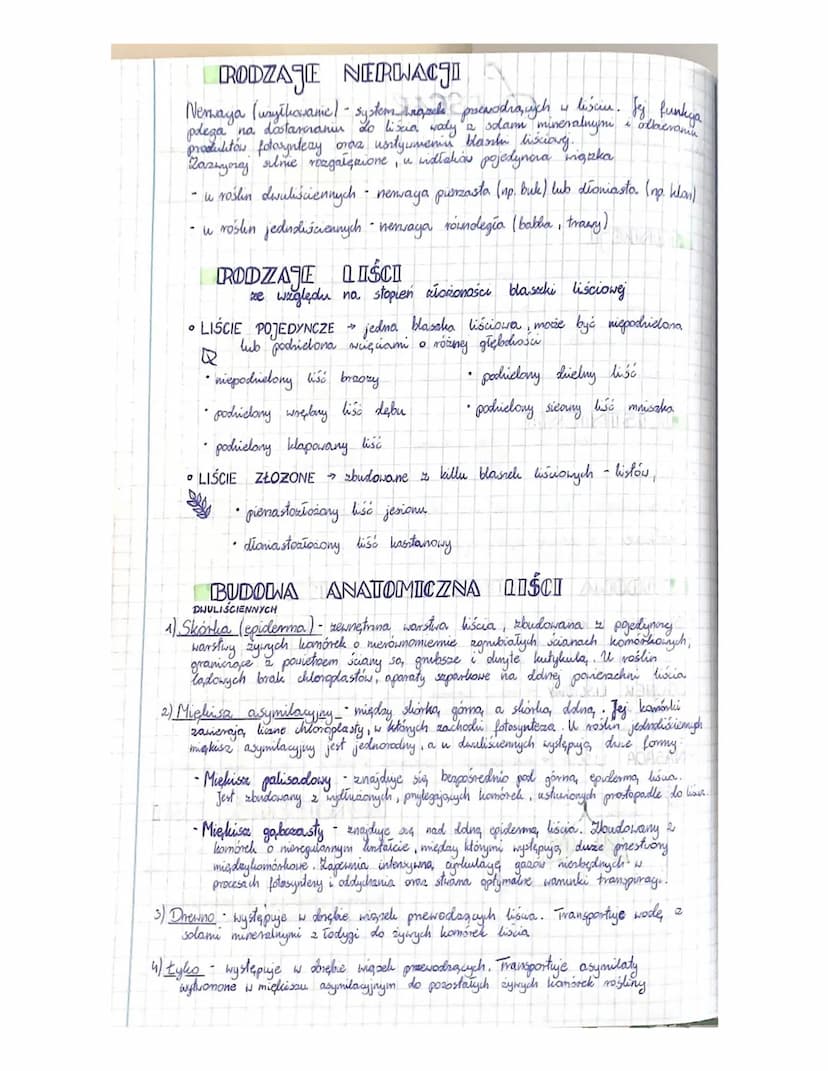 RODZAJE NERWACJI
Nerwacja (użyłkowanie) - system wiązek przewodzących w liściu. Jej funkcja
polega na dostarczaniu do liścia wody z solami mineralnymi i odbieraniu
produktów fotosyntezy oraz usztywnieniu blaszki liściowej.
Zazwyczaj silnie rozgałęzione, u widłaków pojedyncza wiązka
- u roślin dwuliściennych - nerwacja pierzasta (np. buk) lub dłoniasta (np. klon)
- u roślin jednoliściennych - nerwacja równoległa (babka, trawy)
RODZAJE LIŚCI
ze względu na stopień złożoności blaszki liściowej
• LIŚCIE POJEDYNCZE → jedna blaszka liściowa, może być niepodzielona
lub podzielona wcięciami o różnej głębokości
• niepodzielony liść brzozy
• podzielony dzielny liść
• podzielony wrębny liść dębu
• podzielony sieczny liść mniszka
• podzielony klapowany liść
• LIŚCIE ZŁOZONE → zbudowane z kilku blaszek liściowych - listów,
• pierzastozłożony liść jesionu
• dłoniastozłożony liść kasztanowy
BUDOWA ANATOMICZNA LIŚCI
DWULIŚCIENNYCH
1) Skórka (epiderma) - zewnętrzna warstwa liścia, zbudowana z pojedynczej
warstwy żywych komórek o nierównomiernie zgrubiałych ścianach komórkowych,
graniczące z powietrzem ściany są grubsze i okryte kutykulą. U roślin
lądowych brak chloroplastów, aparaty szparkowe na dolnej powierzchni liścia.
2) Miękisz asymilacyjny - między skórką górną a skórką dolną. Jej komórki
zawierają liczne chloroplasty, w których zachodzi fotosynteza. U roślin jednoliściennych
miękisz asymilacyjny jest jednorodny, a u dwuliściennych występują dwie formy:
- Miękisz palisadowy - znajduje się bezpośrednio pod górną epidermą liścia.
Jest zbudowany z wydłużonych, przylegających komórek, ustawionych prostopadle do liścia.
- Miękisz gąbczasty - znajduje się nad dolną epidermą liścia. Zbudowany z
komórek o nieregularnym kształcie, między którymi występują duże przestwory
międzykomórkowe. Zapewnia intensywną cyrkulację gazów niezbędnych w
procesach fotosyntezy i oddychania oraz stwarza optymalne warunki transpiracji.
3) Drewno - występuje w obrębie wiązek przewodzących liścia. Transportuje wodę z
solami mineralnymi z łodygi do żywych komórek liścia
4) Łyko - występuje w obrębie wiązek przewodzących. Transportuje asymilaty
wytworzone w miękiszu asymilacyjnym do pozostałych żywych komórek rośliny